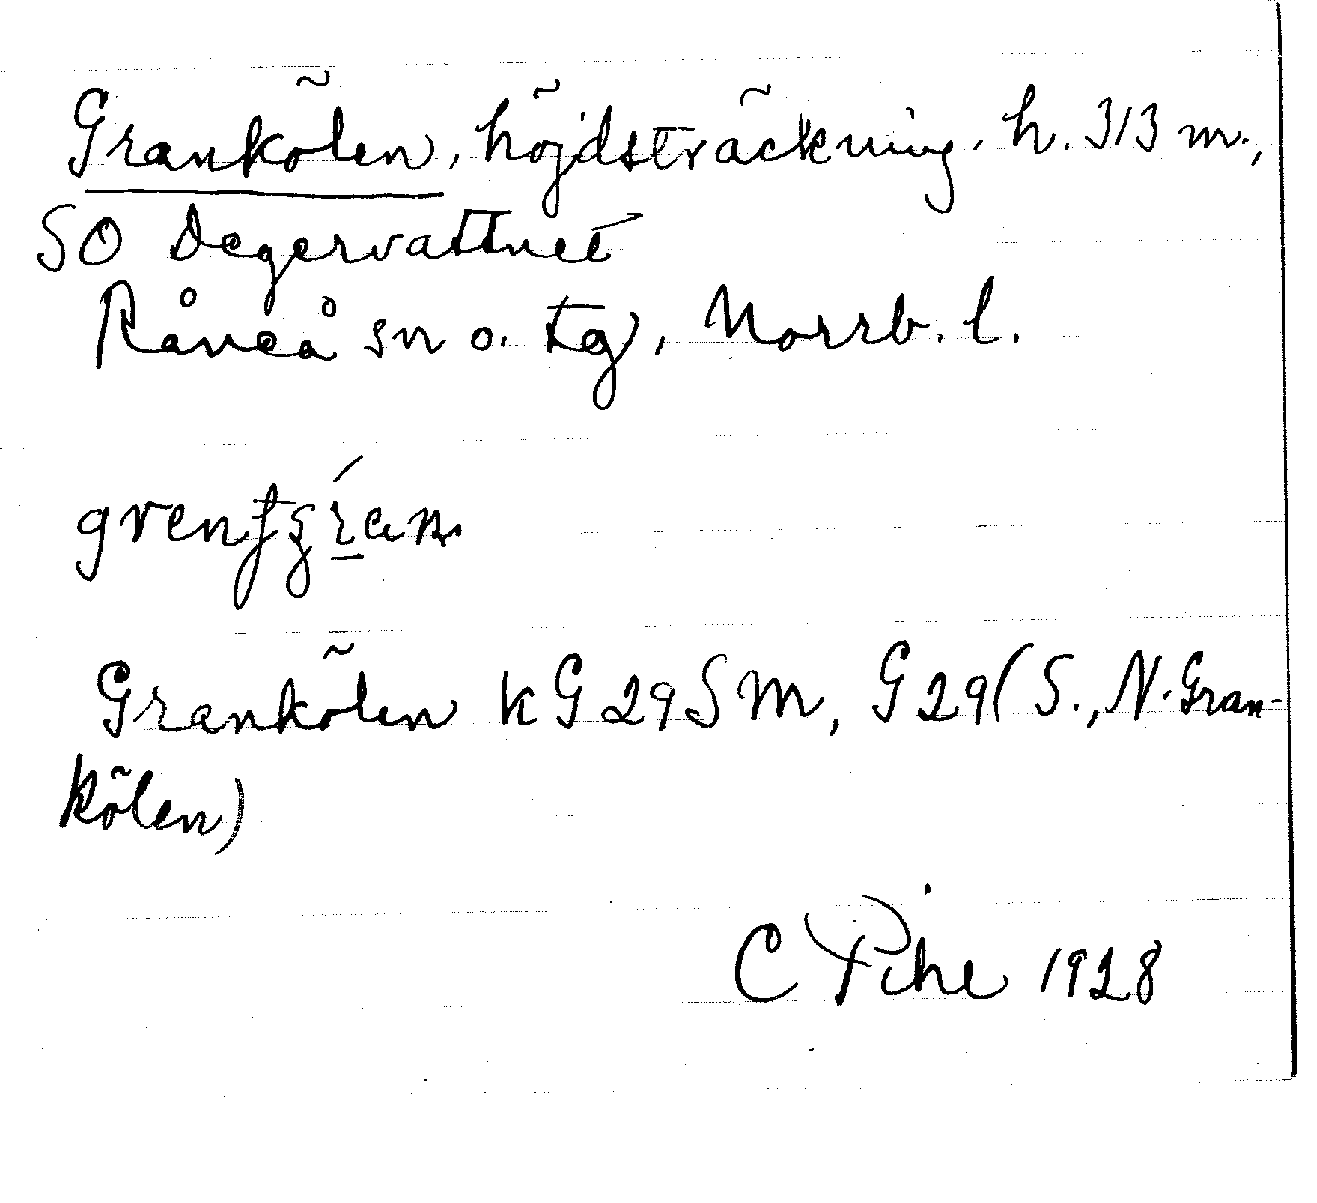 Grankölen, höjdsträckning, h. 313 m.,
SO Degervattnet
Råneå sn o. tg, Norrb. l.
Grankölen k G 29 S M, G 29 (S., N. Gran-
kölen)
C Pihl 1928